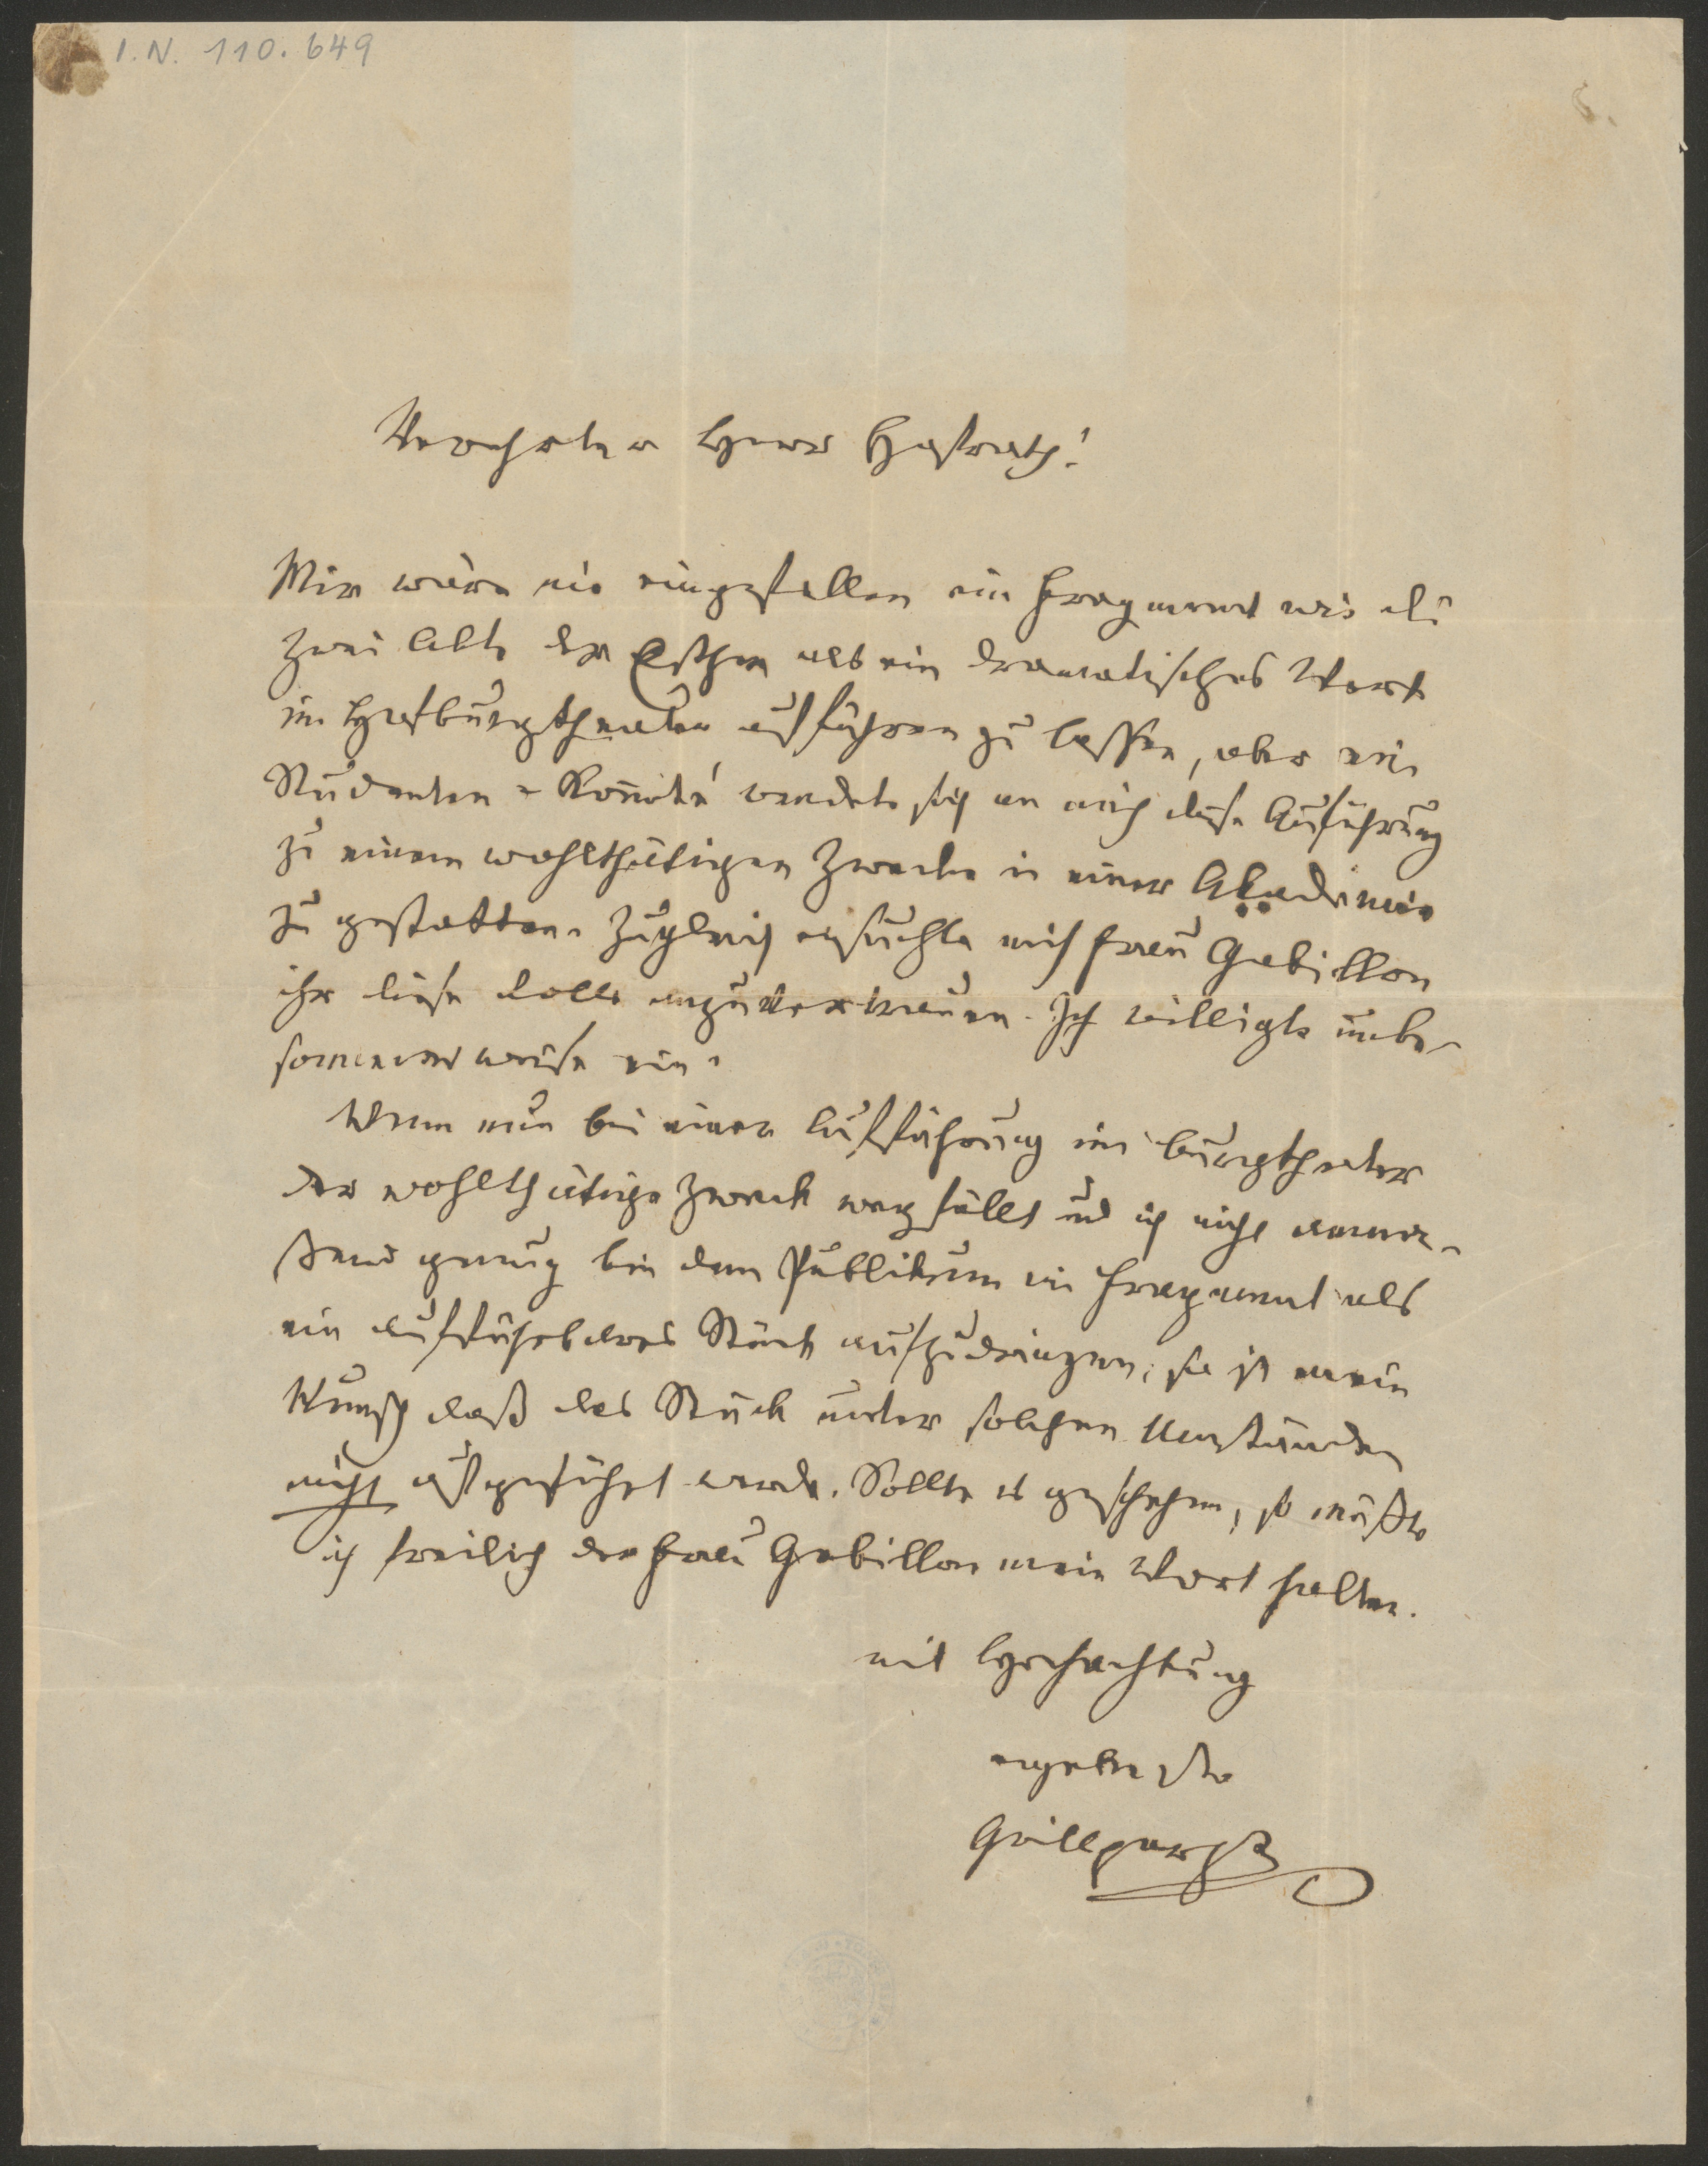 I.N. 110.649
Verehrter Herr Hofrath!
Mir wäre nie eingefallen ein Fragment wie die
zwei Akte der Esther als ein dramatisches Werk
im Hofburgtheater aufführen zu lassen, aber ein
Studenten-Komité wendete sich an mich diese Aufführung
zu einem wohlthätigen Zwecke in einer Akademie
zu gestatten. Zugleich ersuchte mich Frau Gabillon
ihr diese Rolle anzuvertrauen. Ich willigte unbe-
sonnenerweise ein.
Wenn nun bei einer Aufführung im Burgtheater
der wohlthätige Zweck wegfällt und ich nicht anma-
ßend genug bin dem Publikum ein Fragment als
ein aufführbares Stück aufzudringen, so ist mein
Wunsch daß das Stück unter solchen Umständen
nicht aufgeführt werde. Sollte es geschehen, so müßte
ich freilich der Frau Gabillon mein Wort halten.
mit Hochachtung
ergebenster
Grillparzer